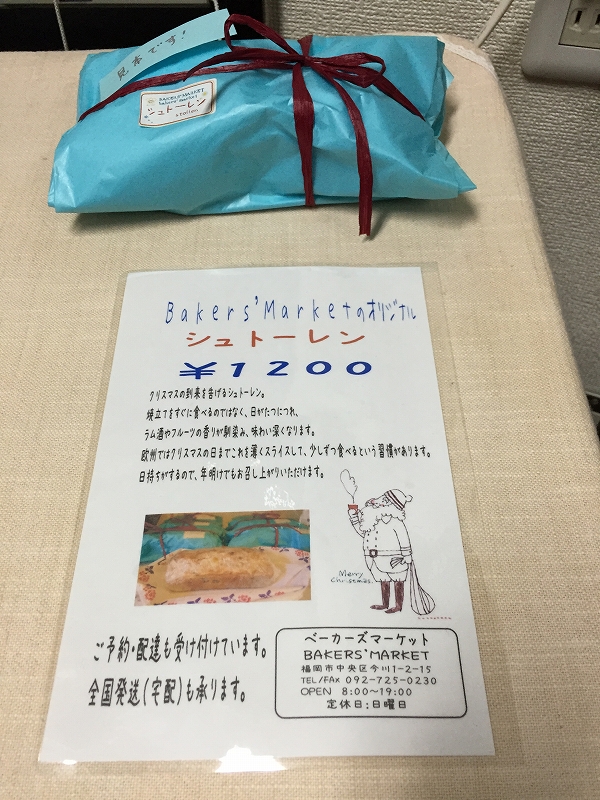 見本です!
BAKERS' MARKET
bakers' market
シュトーレン
stollen
Bakers'Marketのオリジナル
シュトーレン
¥1200
クリスマスの到来を告げるシュトーレン。
焼立てをすぐに食べるのではなく、日がたつにつれ、
ラム酒やフルーツの香りが馴染み、味わい深くなります。
欧州ではクリスマスの日までこれを薄くスライスして、少しずつ食べるという習慣があります。
日持ちがするので、年明けでもお召し上がりいただけます。
Merry
Christmas.
ご予約・配達も受け付けています。
全国発送(宅配)も承ります。
ベーカーズマーケット
BAKERS'MARKET
福岡市中央区今川1-2-15
TEL/FAX 092-725-0230
OPEN 8:00～19:00
定休日:日曜日